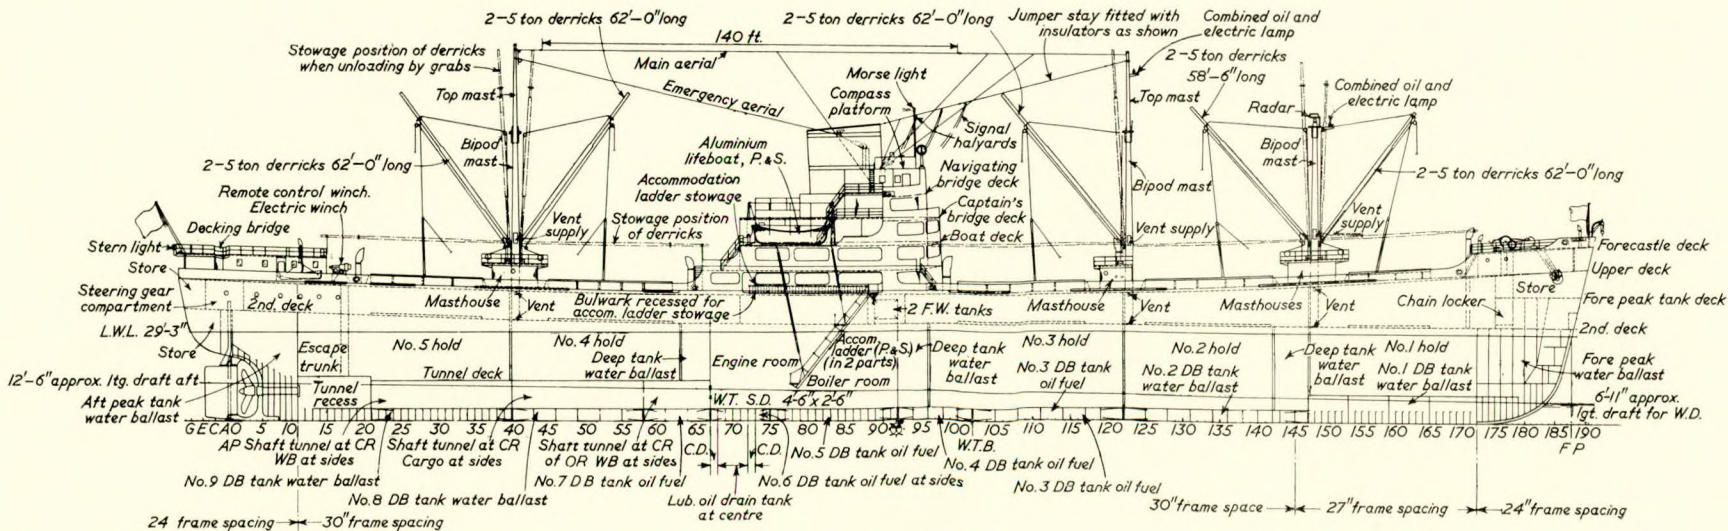 2-5 ton derricks 62'-0" long
2-5 ton derricks 62'-0" long
Jumper stay fitted with
insulators as shown
Combined oil and
electric lamp
Stowage position of derricks
when unloading by grabs
140 ft.
Main aerial
2-5 ton derricks
58'-6" long
Morse light
Compass
platform
Emergency aerial
Top mast
Top mast
Radar
Combined oil and
electric lamp
Signal
halyards
Aluminium
lifeboat, P.&S.
Bipod
mast
Bipod
mast
2-5 ton derricks 62'-0" long
Navigating
bridge deck
2-5 ton derricks 62'-0" long
Remote control winch.
Electric winch
Accommodation
ladder stowage
Bipod mast
Captain's
bridge deck
Decking bridge
Vent
supply
Stowage position
of derricks
Vent
supply
Boat deck
Vent supply
Stern light
Forecastle deck
Store
Upper deck
Steering gear
compartment
2nd. deck
Masthouse
Vent
Bulwark recessed for
accom. ladder stowage
2 F.W. tanks
Masthouse
Vent
Masthouses
Vent
Chain locker
Store
Fore peak tank deck
L.W.L. 29'-3"
2nd. deck
Store
Escape
trunk
No.5 hold
No.4 hold
Deep tank
water ballast
Engine room
Accom.
ladder (P.&S)
(in 2 parts)
Deep tank
water
ballast
No.3 hold
No.3 DB tank
oil fuel
No.2 hold
No.2 DB tank
water ballast
Deep tank
water
ballast
No.1 hold
No.1 DB tank
water ballast
Fore peak
water ballast
12'-6" approx. ltg. draft aft
Aft peak tank
water ballast
Tunnel
recess
Tunnel deck
Boiler room
W.T. S.D. 4'-6" x 2'-6"
6'-11" approx.
lgt. draft for W.D.
G E C A 0 5 10 15 20 25 30 35 40 45 50 55 60 65 70 75 80 85 90 95 100 105 110 115 120 125 130 135 140 145 150 155 160 165 170 175 180 185 190
AP
W.T.B.
F P
Shaft tunnel at CR
WB at sides
Shaft tunnel at CR
Cargo at sides
Shaft tunnel at CR
of OR WB at sides
C.D.
C.D.
No.5 DB tank oil fuel
No.4 DB tank oil fuel
No.9 DB tank water ballast
No.8 DB tank water ballast
No.7 DB tank oil fuel
No.6 DB tank oil fuel at sides
No.3 DB tank oil fuel
Lub. oil drain tank
at centre
24 frame spacing
30" frame spacing
30" frame space
27" frame spacing
24" frame spacing